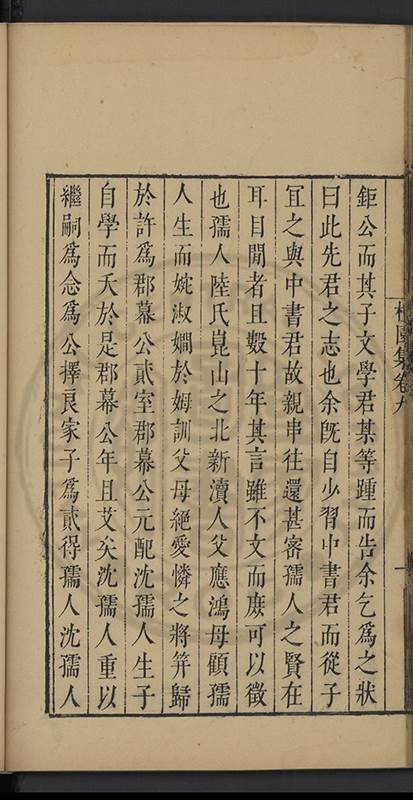 鉅公而其子文學君某等踵而告余乞爲之狀
曰此先君之志也余旣自少習中書君而從子
宜之與中書君故親串往還甚密孺人之賢在
耳目聞者且數十年其言雖不文而庶可以徵
也孺人陸氏崑山之北新瀆人父應鴻母顧孺
人生而婉淑嫺於姆訓父母絕愛憐之將筓歸
於許爲郡幕公貳室郡幕公元配沈孺人生子
自學而夭於是郡幕公年且艾矣沈孺人重以
繼嗣爲念爲公擇良家子爲貳得孺人沈孺人
園集卷九
一